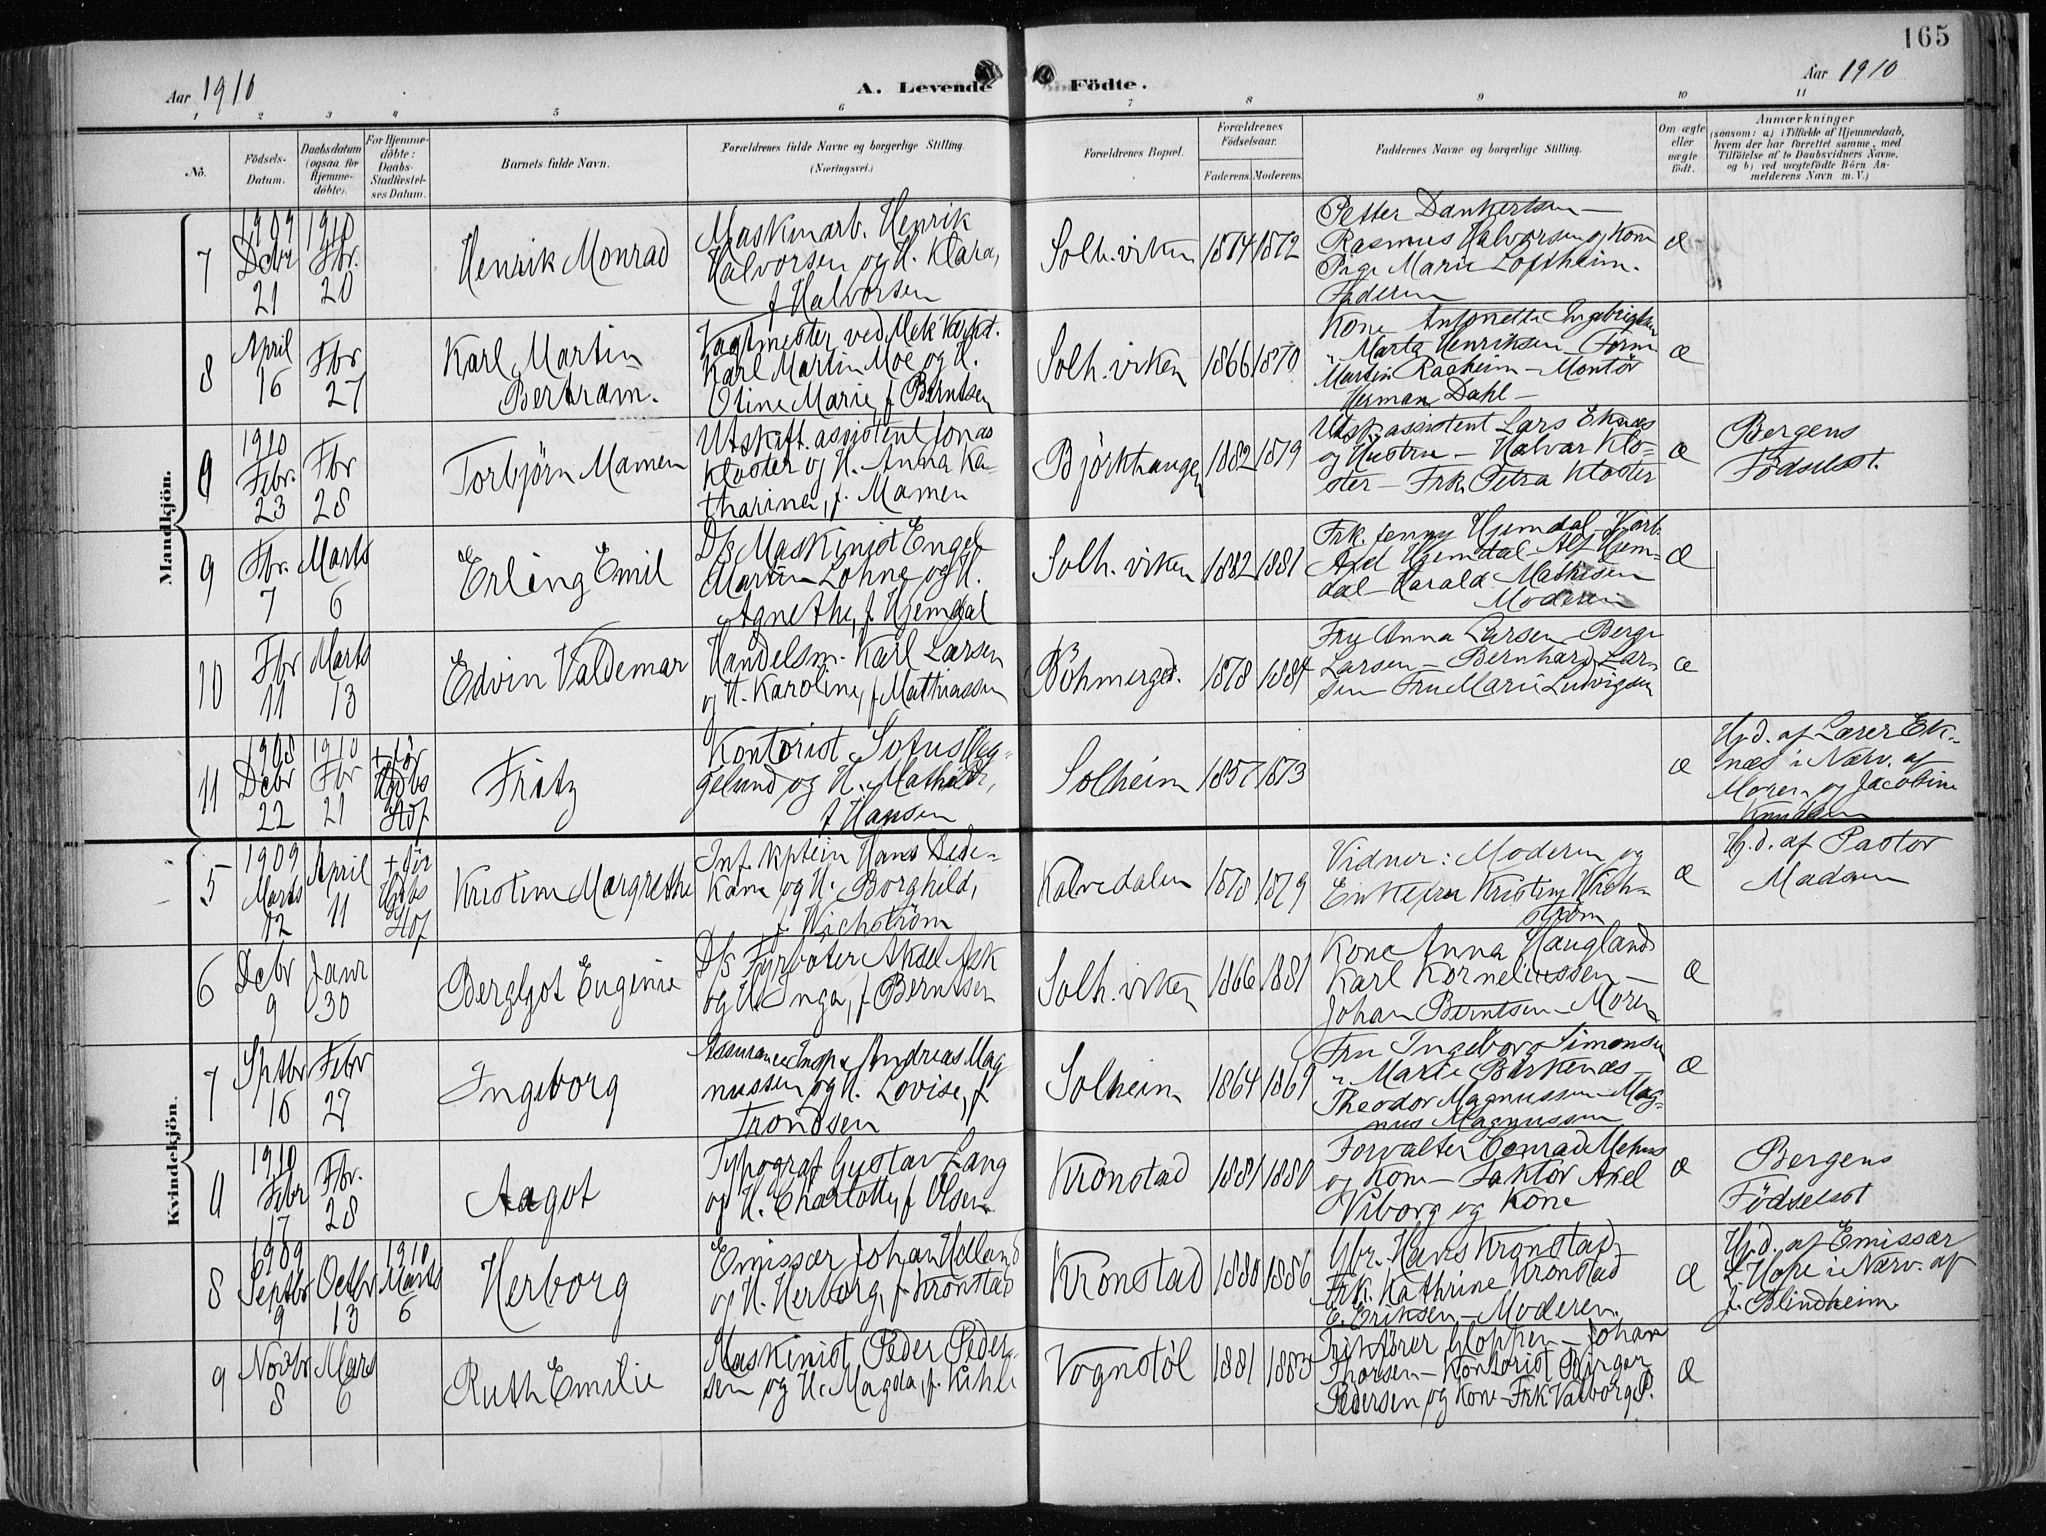 165
Aar 1910
A. Levende Födte.
Aar 1910
1 2 3 4 5 6 7 8 9 10 11
No.
Födsels-Datum.
Daabsdatum (ogsaa for Hjemme-döbte).
For Hjemme-döbte: Daabs-Stadfæstel-ses Datum.
Barnets fulde Navn.
Forældrenes fulde Navne og borgerlige Stilling.
(Næringsvei.)
Forældrenes Bopæl.
Forældrenes Födselsaar.
Faderens. Moderens.
Faddernes Navne og borgerlige Stilling.
Om ægte eller uægte födt.
Anmærkninger
(saasom: a) i Tilfælde af Hjemmedaab,
hvem der har forrettet samme, med
Tilföielse af to Daabsvidners Navne,
og b) ved uægtefödte Börn An-
melderens Navn m. V.)
Mandkjön.
7
1909 Dcbr 21
1910 Fbr. 20
Henrik Monrad
Maskinarb. Henrik
Halvorsen og H. Klara,
f Halvorsen
Solh.viken
1874 1872
Petter Dankertsen —
Rasmus Halvorsen og Kone
Pige Marie Loftheim.
Faderen
æ
8
April 16
Fbr 27
Karl Martin
Bertram.
Vagtmester ved Mek Værkst.
Karl Martin Moe og H.
Oline Marie f Berntsen
Solh.viken
1866 1870
Kone Antonette Engebrigtsen
" Marta Henriksen Form
Martin Raaheim — Montör
Herman Dahl —
æ
1910 Febr. 23
Fbr 28
Torbjörn Mamen
Utskift.assistent Jonas
Kloster og H. Anna Ka-
tharina, f. Mamen
Björkhaugen
1882 1879
Utsk assistent Lars Eknæs
og Hustru — Halvar Klo-
ster — Frk. Petra Kloster
æ
Bergens
Födselsst.
9
Fbr. 7
Marts 6
Erling Emil
D/s Maskinist Engel
Martin Lohne og H.
Agnethe, f Hjemdal
Solh.viken
1882 1881
Frk. Jenny Hjemdal
Axel Hjemdal Alf Hjem-
dal — Harald Mathisen
Moderen
æ
10
Fbr 11
Marts 13
Edvin Valdemar
Handelsm. Karl Larsen
og H. Karoline, f Mathiassen
Böhmerget.
1878 1884
Frk Anna Larsen
Larsen — Bernhard Lar-
sen — Fru Marie Ludvigsen
æ
11
1908 Dcbr 22
1910 Fbr 21
+ för
Fritz
Kontorist
gelund og H. Mathilde,
f Hansen
Solheim
1857 1873
æ
Hjd. af Lærer Ek-
næs i Nærv. af
Moren og Jacobine
Knudsen
Kvindekjön.
5
1909 Marts 12
April 11
+ för
Kristine Margrethe
Inf. kaptein Hans Dede-
kam og H. Borghild,
f Wichström
Kalvedalen
1878 1879
Vidner: Moderen og
Enkefru Kristine Wich-
ström
æ
Hj.d. af Pastor
Madsen
6
Dcbr 9
Janr 30
Bergljot Eugenie
D/s Fyrböter Aksel Ask
og H Inga, f Berntsen
Solh.viken
1866 1881
Kone Anna Haugland
Karl Korneliussen —
Johan Berntsen — Moren
æ
7
Sptbr 16
Febr 27
Ingeborg
Assurance Insp. Andreas Mag
nussen og H. Lovise, f
Trondsen
Solheim
1864 1869
Fru Ingeborg Simonsen
" Marie Birkenæs —
Theodor Magnussen — Mag-
nus Magnussen
æ
1910 Febr 17
Fbr. 28
Aagot
Typograf Gustav Lang
og H. Charlotte, f Olsen
Kronstad
1881 1880
Forvalter Conrad
og Kone — Faktor Axel
Viborg og Kone
æ
Bergens
Födselsst
8
1909 Septbr 9
Octbr 13
1910 Marts 6
Herborg
Emissær Johan
og H. Herborg, f Kronstad
Kronstad
1880 1886
Gbr. Hans Kronstad
Frk. Kathrine Kronstad
E. Eriksen — Moderen.
æ
Hj.d. af Emissær
L. Hope i Nærv. af
J. Blindheim.
9
Novbr 8
Mars 6
Ruth Emilie
Maskinist Peder Peder
sen og H. Magda, f. Kihle
Vognstöl
1881 1883
Gloppen — Johan
Thorsen — Kontorist Birger
Pedersen og Kone — Frk Valborg P.
æ